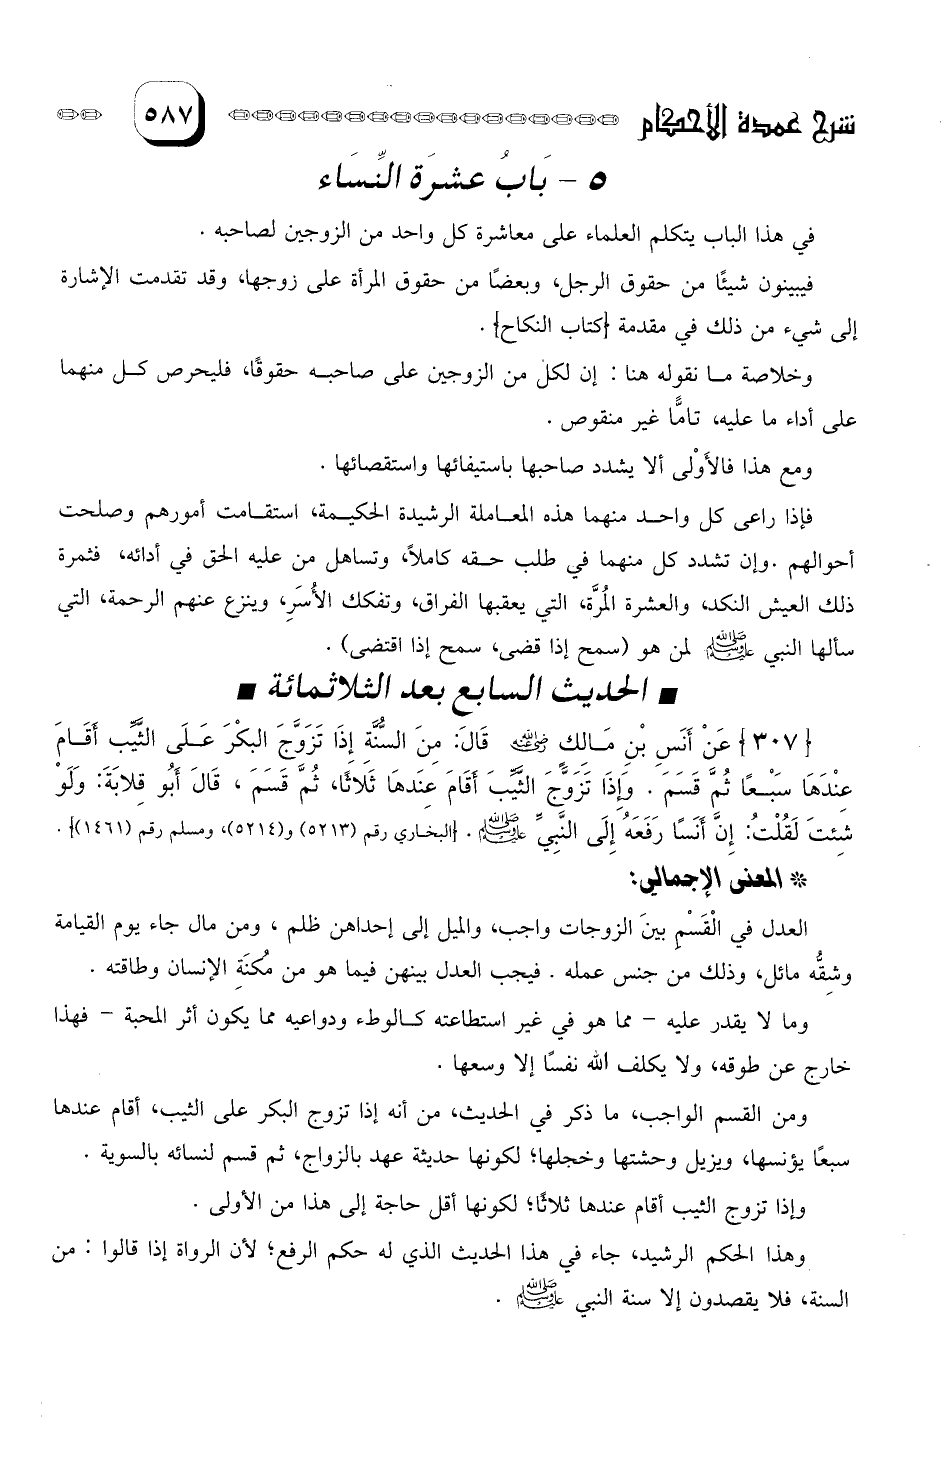 شرح عمدة الأحكام ٥٨٧
٥ - بَابُ عشرَة النِّسَاء
في هذا الباب يتكلم العلماء على معاشرة كل واحد من الزوجين لصاحبه .
فيبينون شيئًا من حقوق الرجل، وبعضًا من حقوق المرأة على زوجها، وقد تقدمت الإشارة
إلى شيء من ذلك في مقدمة {كتاب النكاح} .
وخلاصة مـا نقوله هنا : إن لكل من الزوجين على صاحبـه حقوقًا، فليحرص كـل منهما
على أداء ما عليه، تامًّا غير منقوص .
ومع هذا فالأَوْلى ألا يشدد صاحبها باستيفائها واستقصائها .
فإذا راعى كل واحـد منهما هذه المعـاملة الرشيدة الحكيـمة، استقـامت أمورهم وصلحت
أحوالهم .وإن تشدد كل منهما في طلب حـقه كاملاً، وتساهل من عليه الحق في أدائه، فثمرة
ذلك العيش النكد، والعشرة المُرَّة، التي يعقبها الفراق، وتفكك الأُسَرِ، وينزع عنهم الرحمة، التي
سألها النبي ﷺ لمن هو (سمح إذا قضى، سمح إذا اقتضى) .
■ الحديث السابع بعد الثلاثمائة ■
{٣٠٧} عَنْ أَنَسِ بْنِ مَـالك رضي الله عنه قَالَ: مِنَ السُّنَّة إذَا تَزَوَّجَ البكْرَ عَـلَى الثَّيِّب أَقَـامَ
عنْدَهَا سَبْـعًا ثُمَّ قَسَمَ . وَإِذَا تَزَوَّجَ الثَّيِّبَ أَقَامَ عندَهَا ثَلاثًا، ثُمَّ قَسَمَ ، قَالَ أَبُو قلابَةَ: وَلَوْ
شئتَ لَقُلْتُ: إِنَّ أَنَسًا رَفَعَهُ إِلَى النَّبيِّ ﷺ . {البخاري رقم (٥٢١٣) و(٥٢١٤)، ومسلم رقم (١٤٦١)} .
* المعنى الإجمالي:
العدل في الْقَسْمِ بينَ الزوجات واجب، والميل إلى إحداهن ظلم ، ومن مال جاء يوم القيامة
وشِقُّه مائل، وذلك من جنس عمله . فيجب العدل بينهن فيما هو من مُكنَةِ الإنسان وطاقته .
وما لا يقدر عليه - مما هو في غير استطاعته كـالوطء ودواعيه مما يكون أثر المحبة - فهذا
خارج عن طوقه، ولا يكلف الله نفسًا إلا وسعها .
ومن القسم الواجب، ما ذكر في الحديث، من أنه إذا تزوج البكر على الثيب، أقام عندها
سبعًا يؤنسها، ويزيل وحشتها وخجلها؛ لكونها حديثة عهد بالزواج، ثم قسم لنسائه بالسوية .
وإذا تزوج الثيب أقام عندها ثلاثًا؛ لكونها أقل حاجة إلى هذا من الأولى .
وهذا الحكم الرشيد، جاء في هذا الحديث الذي له حكم الرفع؛ لأن الرواة إذا قالوا : من
السنة، فلا يقصدون إلا سنة النبي ﷺ .